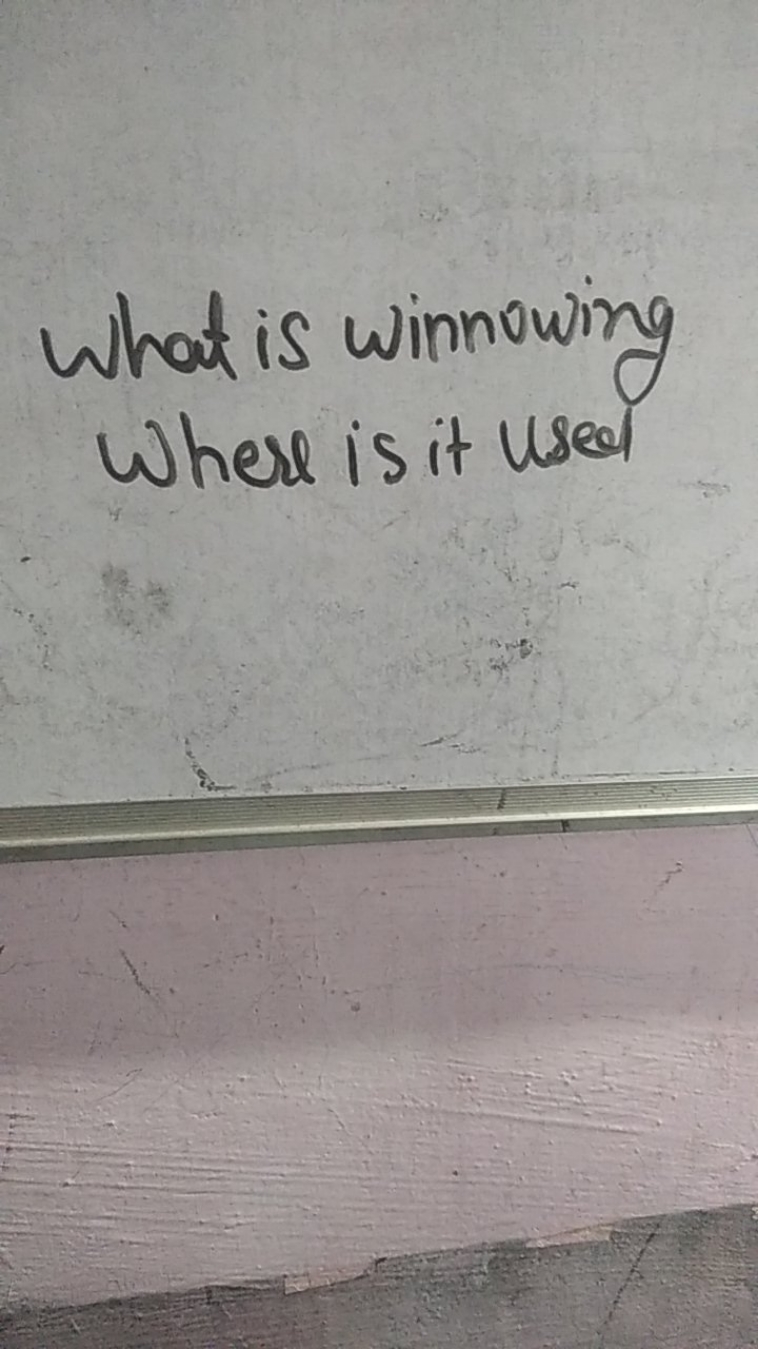 What is winnowing
Where is it used